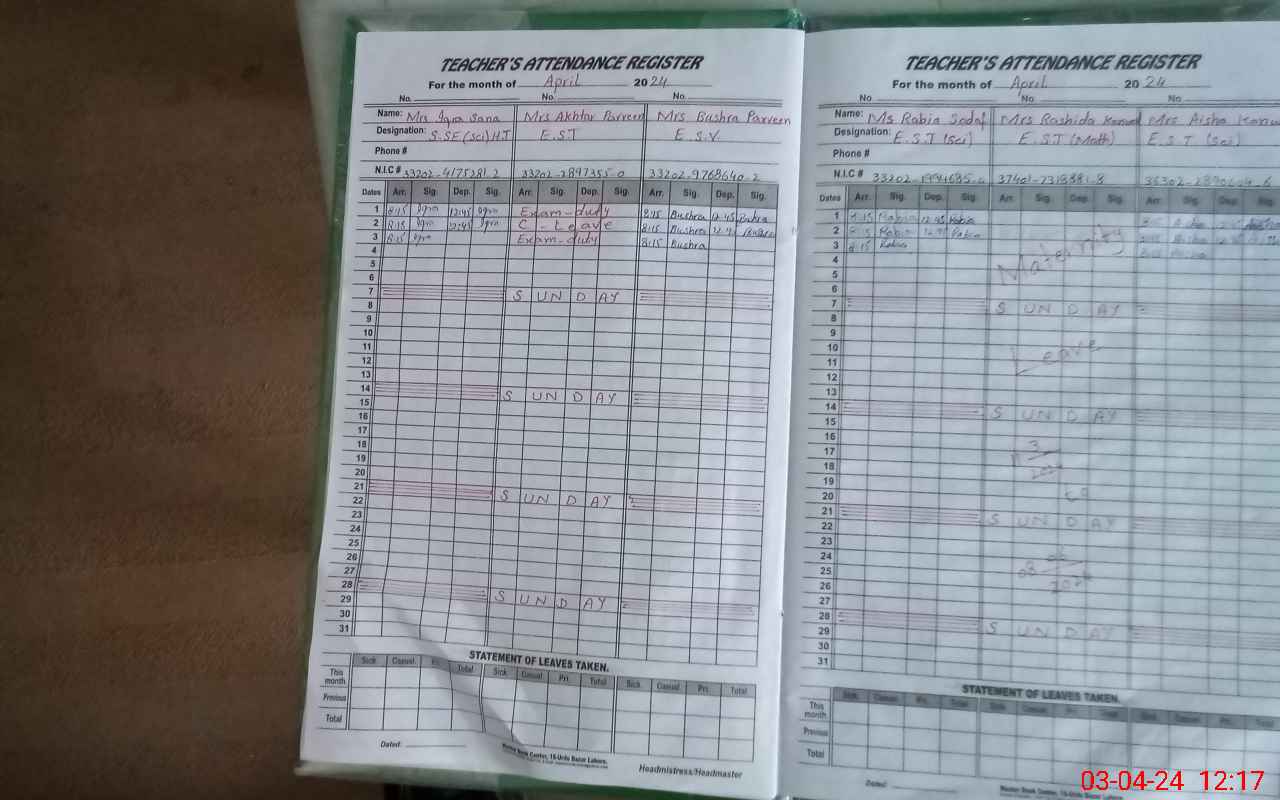 TEACHER'S ATTENDANCE REGISTER
For the month of April 2024
No. No. No.
Name: Mrs Iqra Sana Mrs Akhtar Parveen Mrs Bushra Parveen
Designation: S.SE(Sci) H.T E.S.T E.S.V
Phone #
N.I.C # 33202-4175281-2 33202-2897355-0 33202-9768640-2
Dates Arr. Sig. Dep. Sig. Arr. Sig. Dep. Sig. Arr. Sig. Dep. Sig.
1 8:15 Iqra 12:45 Iqra Exam-duty 8:15 Bushra 12:45 Bushra
2 8:15 Iqra 12:45 Iqra C-Leave 8:15 Bushra 12:45 Bushra
3 8:15 Iqra Exam-duty 8:15 Bushra
4
5
6
7 SUNDAY
8
9
10
11
12
13
14 SUNDAY
15
16
17
18
19
20
21 SUNDAY
22
23
24
25
26
27
28 SUNDAY
29
30
31
STATEMENT OF LEAVES TAKEN.
Sick Casual Pri. Total Sick Casual Pri. Total Sick Casual Pri. Total
This month
Previous
Total
Dated:
Master Book Center, 16-Urdu Bazar Lahore.
Headmistress/Headmaster
TEACHER'S ATTENDANCE REGISTER
For the month of April 2024
No. No. No.
Name: Ms Rabia Sadaf Mrs Rashida Mrs Aisha
Designation: E.S.T (Sci) E.S.T (Math) E.S.T (Sci)
Phone #
N.I.C #
Dates Arr. Sig. Dep. Sig. Arr. Sig. Dep. Sig. Arr. Sig. Dep. Sig.
1 8:15 Rabia 12:45 Rabia
2 8:15 Rabia 12:45 Rabia
3 8:15 Rabia
4 Maternity
5
6
7 SUNDAY
8
9
10 Leave
11
12
13
14 SUNDAY
15
16
17
18
19
20
21 SUNDAY
22
23
24
25
26
27
28 SUNDAY
29
30
31
STATEMENT OF LEAVES TAKEN.
Sick Casual Pri. Total Sick Casual Pri. Total Sick Casual Pri. Total
This month
Previous
Total
Dated:
Master Book Center, 16-Urdu Bazar Lahore.
03-04-24 12:17